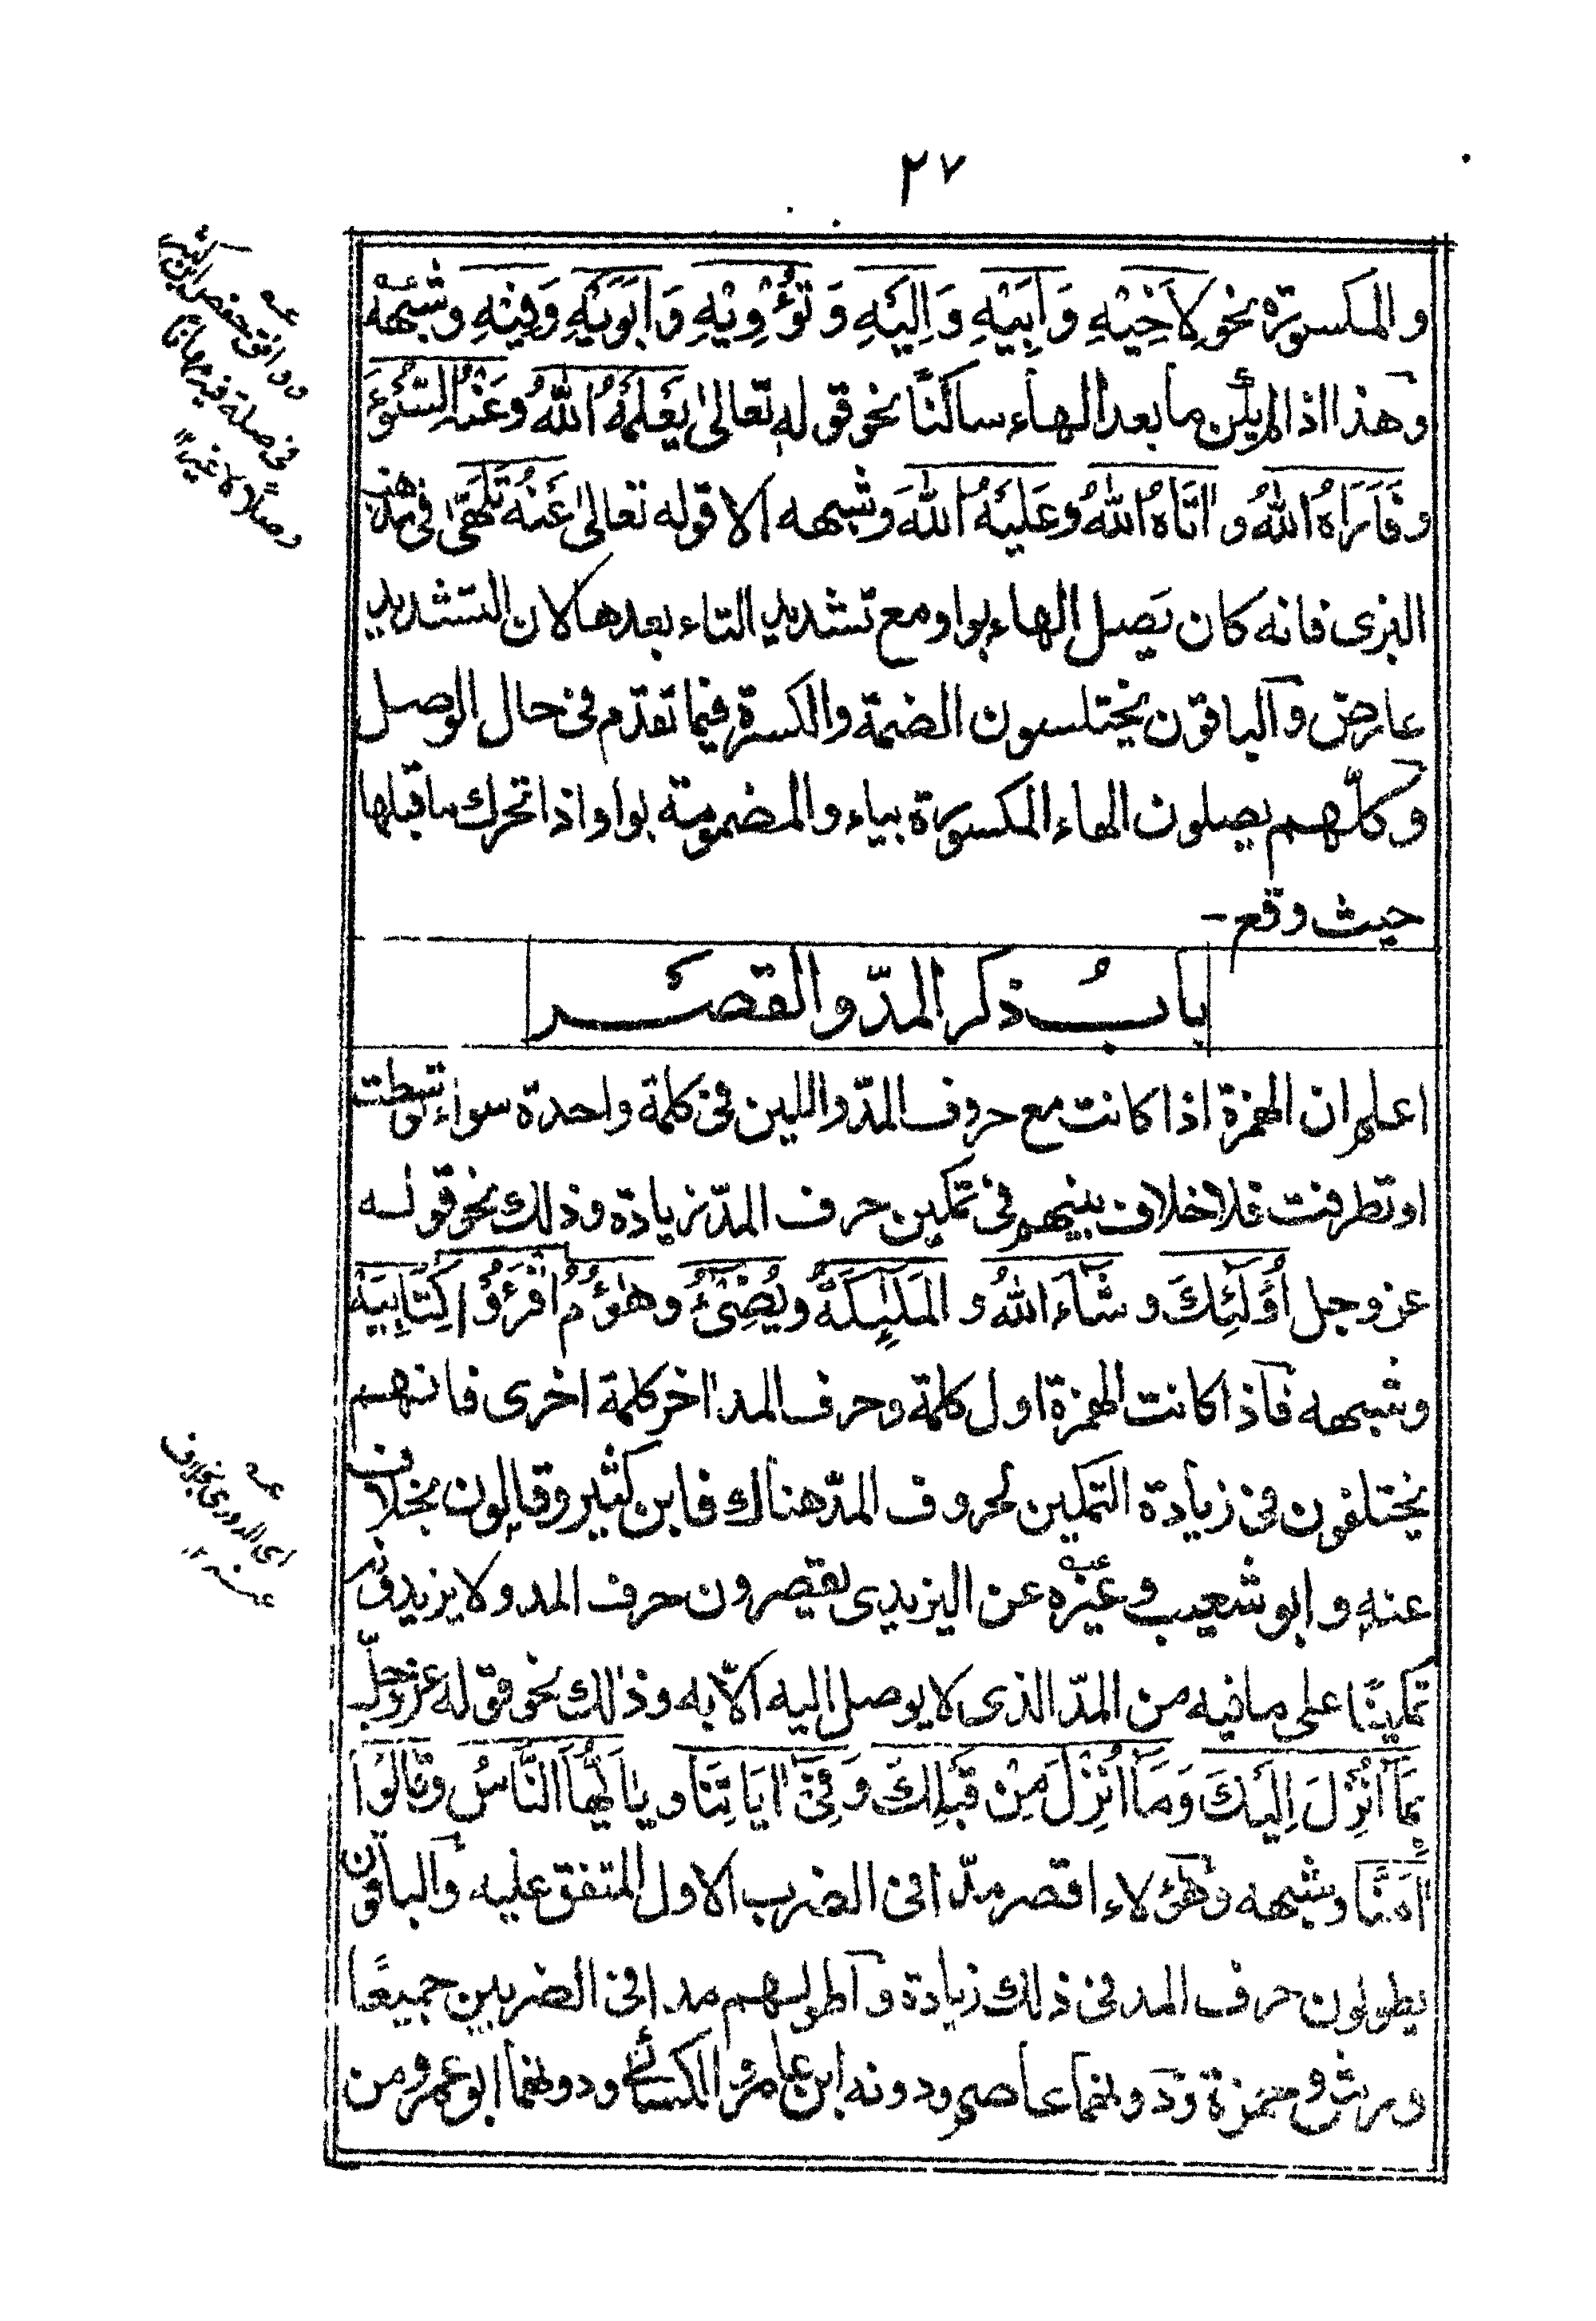 ٢٧
والمكسورة نحو لِاَخِيْهِ وَاَبِيْهِ وَاِلَيْهِ وَتُؤْوِيْهِ وَاَبَوَيْهِ وَفِيْهِ وشبهه
وهذا اذا لم يلق ما بعد الهاء ساكنًا نحو قوله تعالى يَعْلَمْهُ اللّٰهُ وعَنْهُ السُّوْءَ
وفَاَرَاهُ اللّٰهُ واٰتَاهُ اللّٰهُ وعَلَيْهُ اللّٰهَ وشبهه الا قوله تعالىٰ عَنْهُ تَلَهّٰى فى مذهب
البزى فانه كان يَصل الهاء بواو مع تشديد التاء بعدها لان التشديد
عارض والباقون يختلسون الضمة والكسرة فيما تقدّم فى حال الوصل
وكلّهم يصلون الهاء المكسورة بياء والمضمومة بواو اذا تحرك ما قبلها
حيث وقع -
بابُ ذكر المدّ والقصر
اعلم ان الهمزة اذا كانت مع حروف المدّ واللين فى كلمة واحدة سواء توسطت
او تطرفت فلا خلاف بينهم فى تمكين حرف المدّ زيادة وذلك نحو قوله
عز وجل اُولٰۤئِكَ وشَآءَ اللّٰهُ والْمَلٰٓئِكَةُ ويُضِىْٓءُ وهٰٓؤُمُ اقْرَءُوْا كِتَابِيَهْ
وشبهه فاذا كانت الهمزة اول كلمة وحرف المد اٰخر كلمة اخرى فانهم
يختلفون فى زيادة التمكين لحروف المدّ هناك فابن كثير وقالون بخلاف
عنه وابو شعيب وغيره عن اليزيدى يقصرون حرف المد ولا يزيدونه
تمكينًا على ما فيه من المدّ الذى لا يوصل اليه الّا به وذٰلك نحو قوله عز وجلّ
بِمَآ اُنْزِلَ اِلَيْكَ وَمَآ اُنْزِلَ مِنْ قَبْلِكَ وَفِىْٓ اٰيَاتِنَا ويٰٓاَيُّهَا النَّاسُ وقَالُوْٓا
اٰمَنَّا وشبهه وهٰؤلاء اقصر مدّا فى الضرب الاول المتفق عليه والباقون
يطولون حرف المد فى ذلك زيادة واطولهم مدا فى الضربين جميعًا
ورش وحمزة ودونهما عاصم ودونه ابن عامر والكسائى ودونهما ابو عمرو من
عه ووافق حفص ابن كثير
فى صلة فيه مهانًا
وصلًا لا غير
عه اى الدورى بخلاف
عنه ١٢